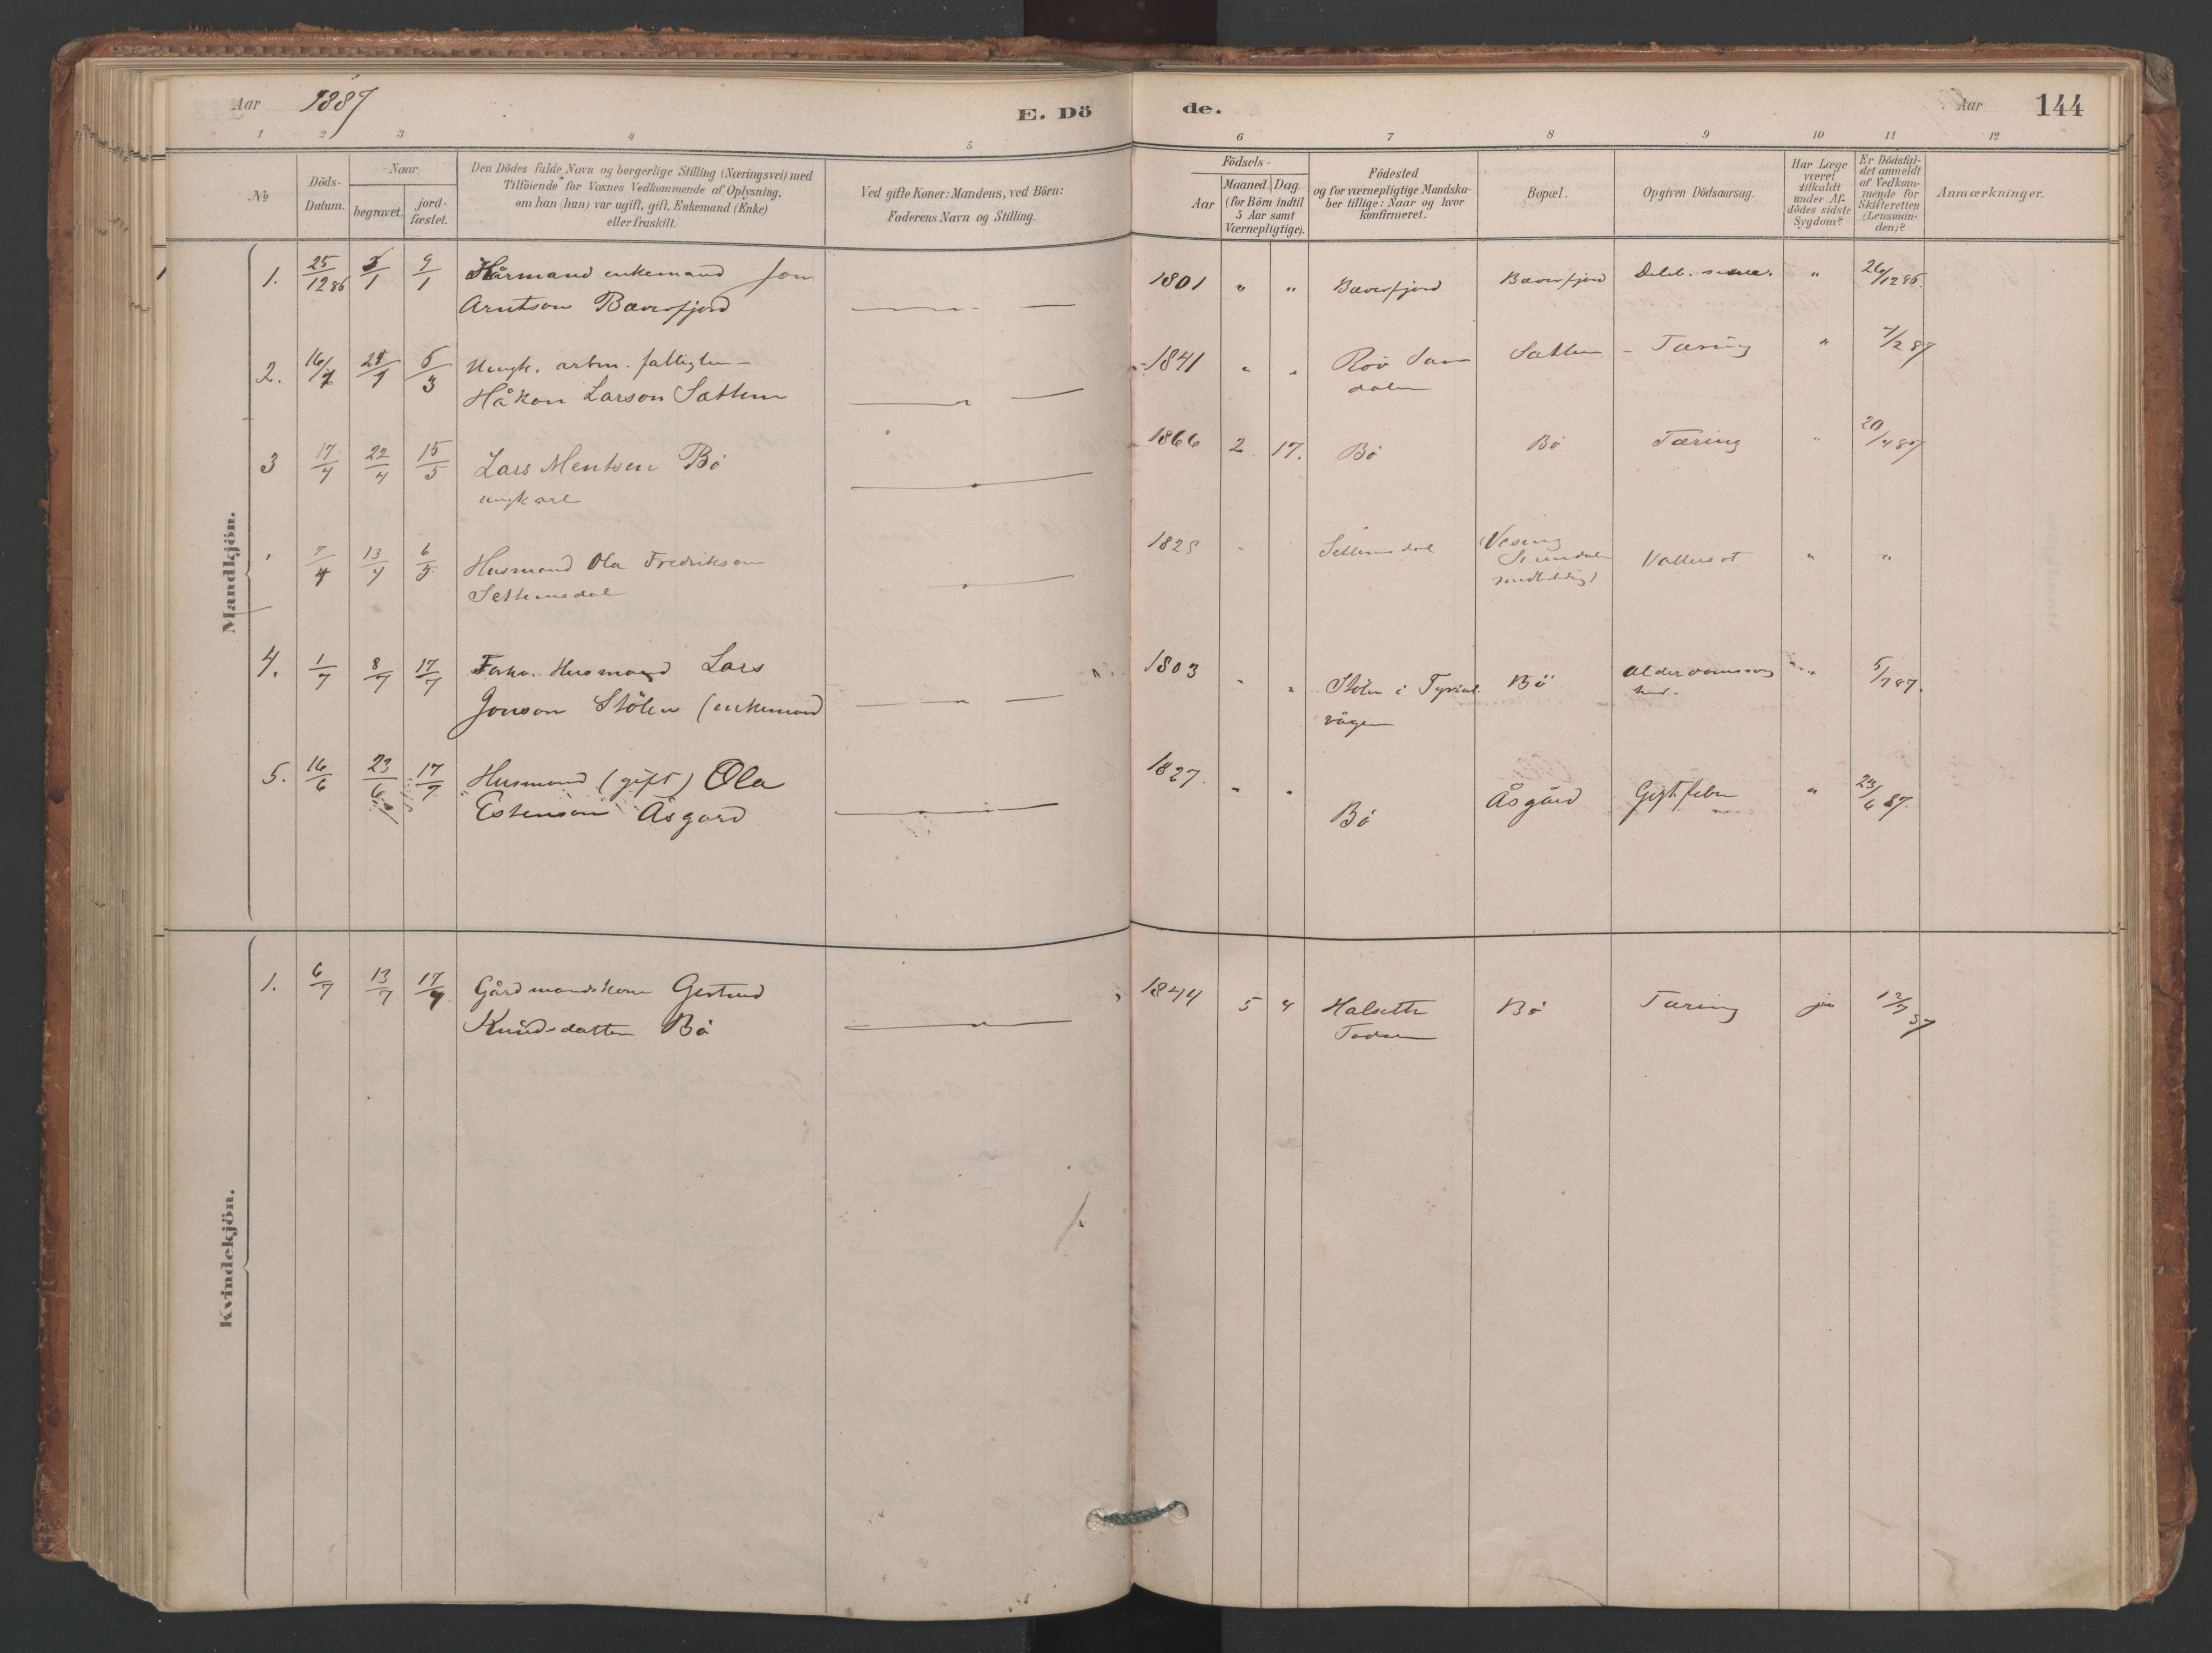 Aar 1887
E. Dö de.
Aar 144
1 2 3 4 5 6 7 8 9 10 11 12
No
Döds-Datum.
Naar
begravet.
jord-fæstet.
Den Dödes fulde Navn og borgerlige Stilling (Næringsvei) med
Tilföiende for Voxnes Vedkommende af Oplysning,
om han (hun) var ugift, gift, Enkemand (Enke)
eller fraskilt.
Ved gifte Koner: Mandens, ved Börn:
Faderens Navn og Stilling.
Födsels-
Aar
Maaned. Dag.
(for Börn indtil
5 Aar samt
Værnepligtige).
Födested
og for værnepligtige Mandska-
ber tillige: Naar og hvor
konfirmeret.
Bopæl.
Opgiven Dödsaarsag.
Har Læge
været
tilkaldt
under Af-
dödes sidste
Sygdom?
Er Dödsfal-
det anmeldt
af Vedkom-
mende for
Skifteretten
(Lensman-
den)?
Anmærkninger.
Mandkjön.
1. 25/12 86 9/1 enkemand Jon 1801 " " Bæverfjord Bæverfjord " 26/12 86.
Arntson Bæverfjord
2. 16/1 24/1 5/3 Ungk. arbm. 1841 " " Sættem Tæring " 7/2 87
Håkon Larson Sættem
3 17/4 22/4 15/5 Lars Mentsen Bö 1866 2. 17. Bö Bö Tæring " 20/4 87
ungkarl
7/4 13/4 Husmand Ola Fredrikson Settemsdal Vattersot " "
Settemsdal
4. 1/7 8/7 17/7 Husmand Lars 1803 " " Stölen i Bö 5/7 87.
Jonson Stölen (enkemand vågen
5. 16/6 23/6 17/7 Husmand (gift) Ola 1827. " " Bö Åsgård Gigtfeber " 23/6 87.
Estenson Åsgard
Kvindekjön.
1. 6/7 13/7 17/7 Gårdmandskone Gertrud 1844 5 4 Halsette Bö Tæring ja 12/7 87
Knudsdatter Bö